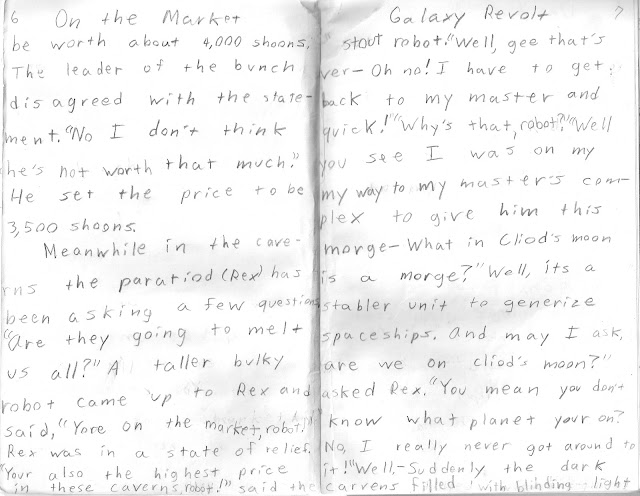 6 On the Market
be worth about 4,000 shoons.
The leader of the bunch
disagreed with the state-
ment. "No I don't think
he's not worth that much."
He set the price to be
3,500 shoons.
Meanwhile in the cave-
rns the paratiod (Rex) has
been asking a few questions
"Are they going to melt
us all?" A taller bulky
robot came up to Rex and
said, "Yore on the market, robot!"
Rex was in a state of relief.
"Your also the highest price
in these caverns, robot!" said the
Galaxy Revolt 7
stout robot. "Well, gee that's
ver- Oh no! I have to get
back to my master and
quick!" "Why's that, robot?" "Well
you see I was on my
my way to my master's com-
plex to give him this
morge- What in Cliod's moon
is a morge?" "Well, its a
stabler unit to generize
spaceships. And may I ask,
are we on cliod's moon?"
asked Rex. "You mean you don't
know what planet your on?
No, I really never got around to
it!" Well,- Suddenly the dark
carvens filled with blinding light